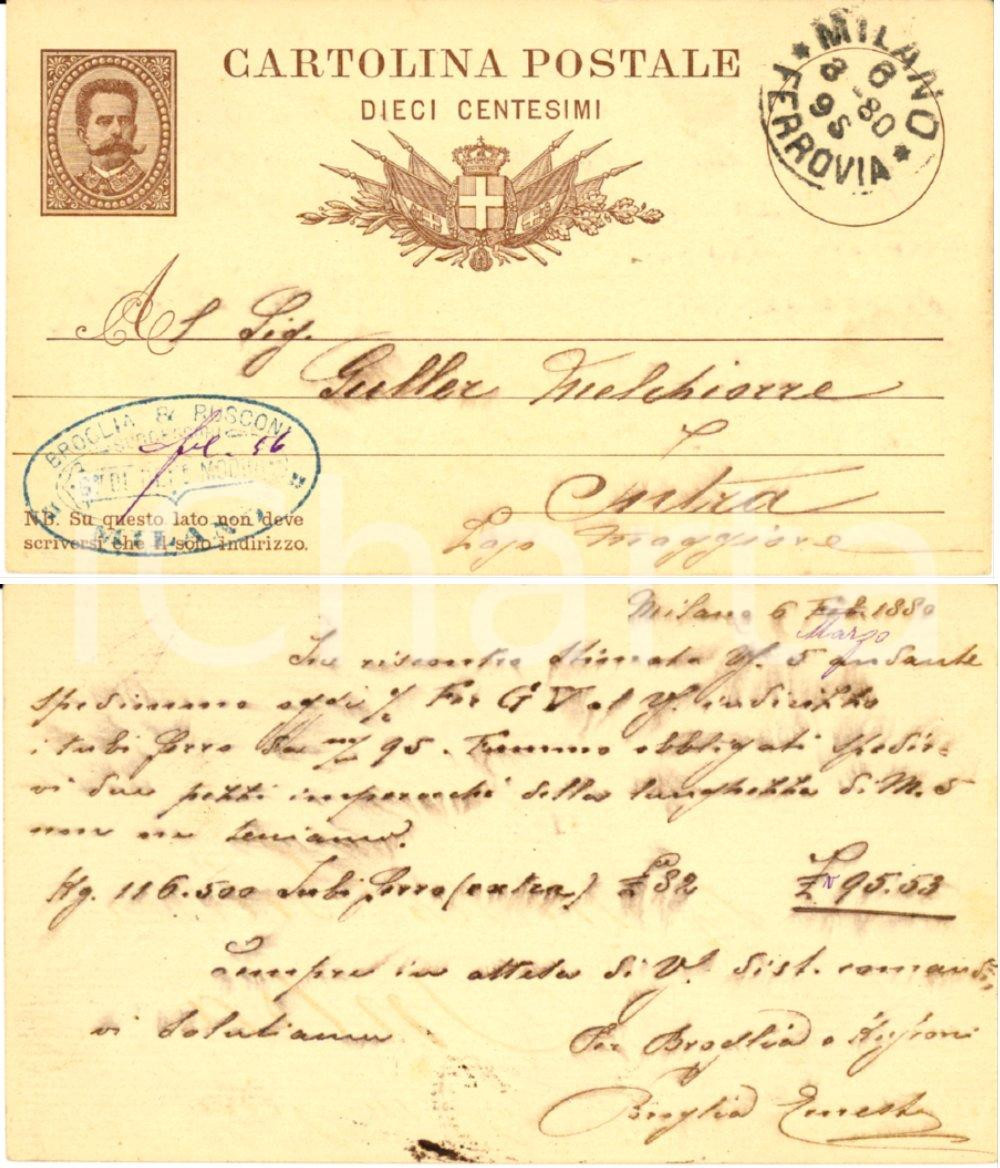 CARTOLINA POSTALE
DIECI CENTESIMI
MILANO
8 6
9S 80
* FERROVIA *
Al Sig.
Guller Melchiorre
Intra
Lago Maggiore
BROGLIA & RUSCONI
56
MILANO
NB. Su questo lato non deve
scriversi che il solo indirizzo.
iCharta
Milano 6 Feb. 1880
Marzo
In riscontro stimata Vs. 5 andante
spedimmo oggi Per G V al Vs. indirizzo
i tubi ferro da m/m 95. Fummo obbligati spedir-
vi due pezzi imperochè della lunghezza di M. 5
non ne teniamo.
Kg. 116.500 Tubi ferro (extra) £ 82 £ 95.53
Sempre in attesa di Vs. dist. comandi,
vi salutiamo
Per Broglia e Rusconi
Broglia Ernesto